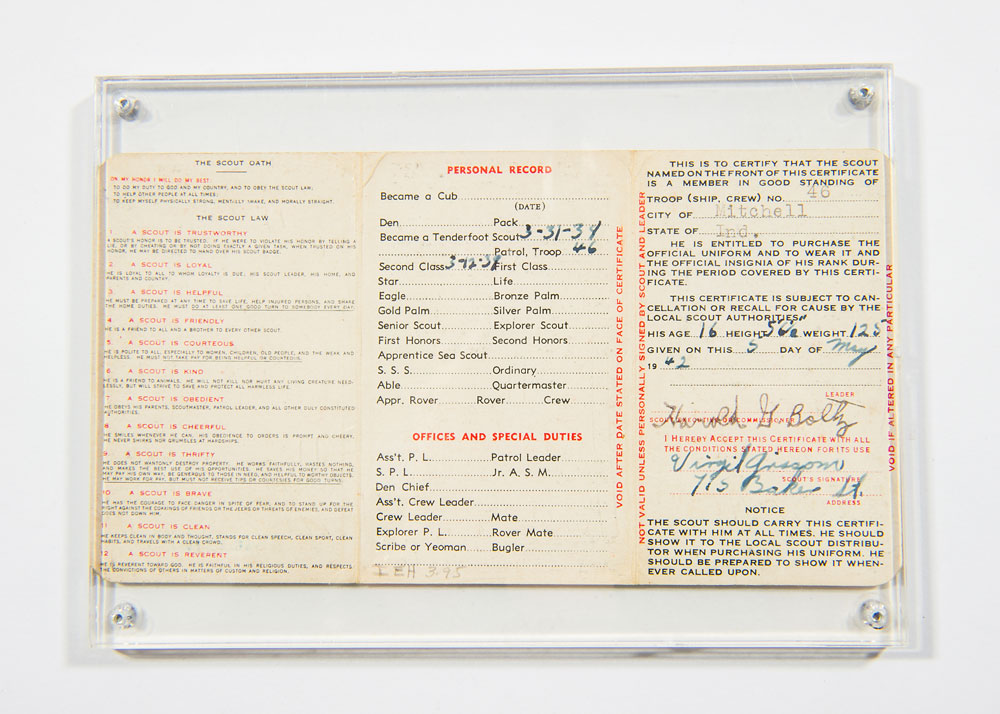 THE SCOUT OATH
ON MY HONOR I WILL DO MY BEST:
TO DO MY DUTY TO GOD AND MY COUNTRY, AND TO OBEY THE SCOUT LAW;
TO HELP OTHER PEOPLE AT ALL TIMES;
TO KEEP MYSELF PHYSICALLY STRONG, MENTALLY AWAKE, AND MORALLY STRAIGHT.
THE SCOUT LAW
1. A SCOUT IS TRUSTWORTHY
A SCOUT'S HONOR IS TO BE TRUSTED. IF HE WERE TO VIOLATE HIS HONOR BY TELLING A
LIE, OR BY CHEATING OR BY NOT DOING EXACTLY A GIVEN TASK, WHEN TRUSTED ON HIS
HONOR, HE MAY BE DIRECTED TO HAND OVER HIS SCOUT BADGE.
2. A SCOUT IS LOYAL
HE IS LOYAL TO ALL TO WHOM LOYALTY IS DUE, HIS SCOUT LEADER, HIS HOME, AND
PARENTS AND COUNTRY.
3. A SCOUT IS HELPFUL
HE MUST BE PREPARED AT ANY TIME TO SAVE LIFE, HELP INJURED PERSONS, AND SHARE
THE HOME DUTIES. HE MUST DO AT LEAST ONE GOOD TURN TO SOMEBODY EVERY DAY.
4. A SCOUT IS FRIENDLY
HE IS A FRIEND TO ALL AND A BROTHER TO EVERY OTHER SCOUT.
5. A SCOUT IS COURTEOUS
HE IS POLITE TO ALL, ESPECIALLY TO WOMEN, CHILDREN, OLD PEOPLE, AND THE WEAK AND
HELPLESS. HE MUST NOT TAKE PAY FOR BEING HELPFUL OR COURTEOUS.
6. A SCOUT IS KIND
HE IS A FRIEND TO ANIMALS. HE WILL NOT KILL NOR HURT ANY LIVING CREATURE NEED-
LESSLY, BUT WILL STRIVE TO SAVE AND PROTECT ALL HARMLESS LIFE.
7. A SCOUT IS OBEDIENT
HE OBEYS HIS PARENTS, SCOUTMASTER, PATROL LEADER, AND ALL OTHER DULY CONSTITUTED
AUTHORITIES.
8. A SCOUT IS CHEERFUL
HE SMILES WHENEVER HE CAN. HIS OBEDIENCE TO ORDERS IS PROMPT AND CHEERY.
HE NEVER SHIRKS NOR GRUMBLES AT HARDSHIPS.
9. A SCOUT IS THRIFTY
HE DOES NOT WANTONLY DESTROY PROPERTY. HE WORKS FAITHFULLY, WASTES NOTHING,
AND MAKES THE BEST USE OF HIS OPPORTUNITIES. HE SAVES HIS MONEY SO THAT HE
MAY PAY HIS OWN WAY, BE GENEROUS TO THOSE IN NEED, AND HELPFUL TO WORTHY OBJECTS.
HE MAY WORK FOR PAY, BUT MUST NOT RECEIVE TIPS OR COURTESIES FOR GOOD TURNS.
10. A SCOUT IS BRAVE
HE HAS THE COURAGE TO FACE DANGER IN SPITE OF FEAR, AND TO STAND UP FOR THE
RIGHT AGAINST THE COAXINGS OF FRIENDS OR THE JEERS OR THREATS OF ENEMIES, AND DEFEAT
DOES NOT DOWN HIM.
11. A SCOUT IS CLEAN
HE KEEPS CLEAN IN BODY AND THOUGHT, STANDS FOR CLEAN SPEECH, CLEAN SPORT, CLEAN
HABITS, AND TRAVELS WITH A CLEAN CROWD.
12. A SCOUT IS REVERENT
HE IS REVERENT TOWARD GOD. HE IS FAITHFUL IN HIS RELIGIOUS DUTIES, AND RESPECTS
THE CONVICTIONS OF OTHERS IN MATTERS OF CUSTOM AND RELIGION.
PERSONAL RECORD
Became a Cub
(DATE)
Den Pack
Became a Tenderfoot Scout 3-31-39
Patrol, Troop 46
Second Class First Class
Star Life
Eagle Bronze Palm
Gold Palm Silver Palm
Senior Scout Explorer Scout
First Honors Second Honors
Apprentice Sea Scout
S. S. S. Ordinary
Able Quartermaster
Appr. Rover Rover Crew
OFFICES AND SPECIAL DUTIES
Ass't. P. L. Patrol Leader
S. P. L. Jr. A. S. M.
Den Chief
Ass't, Crew Leader
Crew Leader Mate
Explorer P. L. Rover Mate
Scribe or Yeoman Bugler
1 EH 3.95
VOID AFTER DATE STATED ON FACE OF CERTIFICATE
NOT VALID UNLESS PERSONALLY SIGNED BY SCOUT AND LEADER
THIS IS TO CERTIFY THAT THE SCOUT
NAMED ON THE FRONT OF THIS CERTIFICATE
IS A MEMBER IN GOOD STANDING OF
TROOP (SHIP, CREW) NO. 46
CITY OF Mitchell
STATE OF Ind.
HE IS ENTITLED TO PURCHASE THE
OFFICIAL UNIFORM AND TO WEAR IT AND
THE OFFICIAL INSIGNIA OF HIS RANK DUR-
ING THE PERIOD COVERED BY THIS CERTI-
FICATE.
THIS CERTIFICATE IS SUBJECT TO CAN-
CELLATION OR RECALL FOR CAUSE BY THE
LOCAL SCOUT AUTHORITIES.
HIS AGE 16 HEIGHT WEIGHT 125
GIVEN ON THIS 5 DAY OF May
1942
LEADER
Harold G Boltz
SCOUT EXECUTIVE OR COMMISSIONER
I HEREBY ACCEPT THIS CERTIFICATE WITH ALL
THE CONDITIONS STATED HEREON FOR ITS USE
Virgil Grissom
SCOUT'S SIGNATURE
715 Baker St.
ADDRESS
NOTICE
THE SCOUT SHOULD CARRY THIS CERTIFI-
CATE WITH HIM AT ALL TIMES. HE SHOULD
SHOW IT TO THE LOCAL SCOUT DISTRIBU-
TOR WHEN PURCHASING HIS UNIFORM. HE
SHOULD BE PREPARED TO SHOW IT WHEN-
EVER CALLED UPON.
VOID IF ALTERED IN ANY PARTICULAR